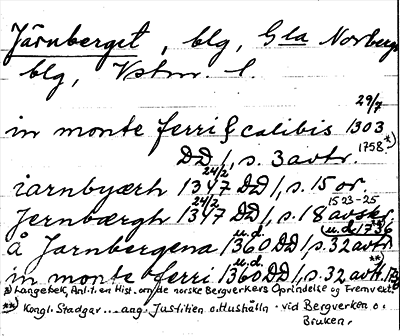 Järnberget, blg, Gla Norbergs
blg, Vstm. l.
29/7
in monte ferri & calibis 1303
1758 *)
DD 1, s. 3 avtr.
24/2
iarnbyærh 1347 DD 1, s. 15 or.
24/2 1523-25
Jernbærgh 1347 DD 1, s. 18 avskr.
u.d. (u.d. 1736
å Jarnbergena 1360 DD 1, s. 32 avtr)
u.d. **)
in monte ferri 1360 DD 1, s. 32 avtr.
*) Langebek, Anl. t. en Hist. om de norske Bergverkers Oprindelse og Fremvekt.
**) Kongl. Stadgar... ang. Justitien o. Hushålln. vid Bergverken o.
Bruken.